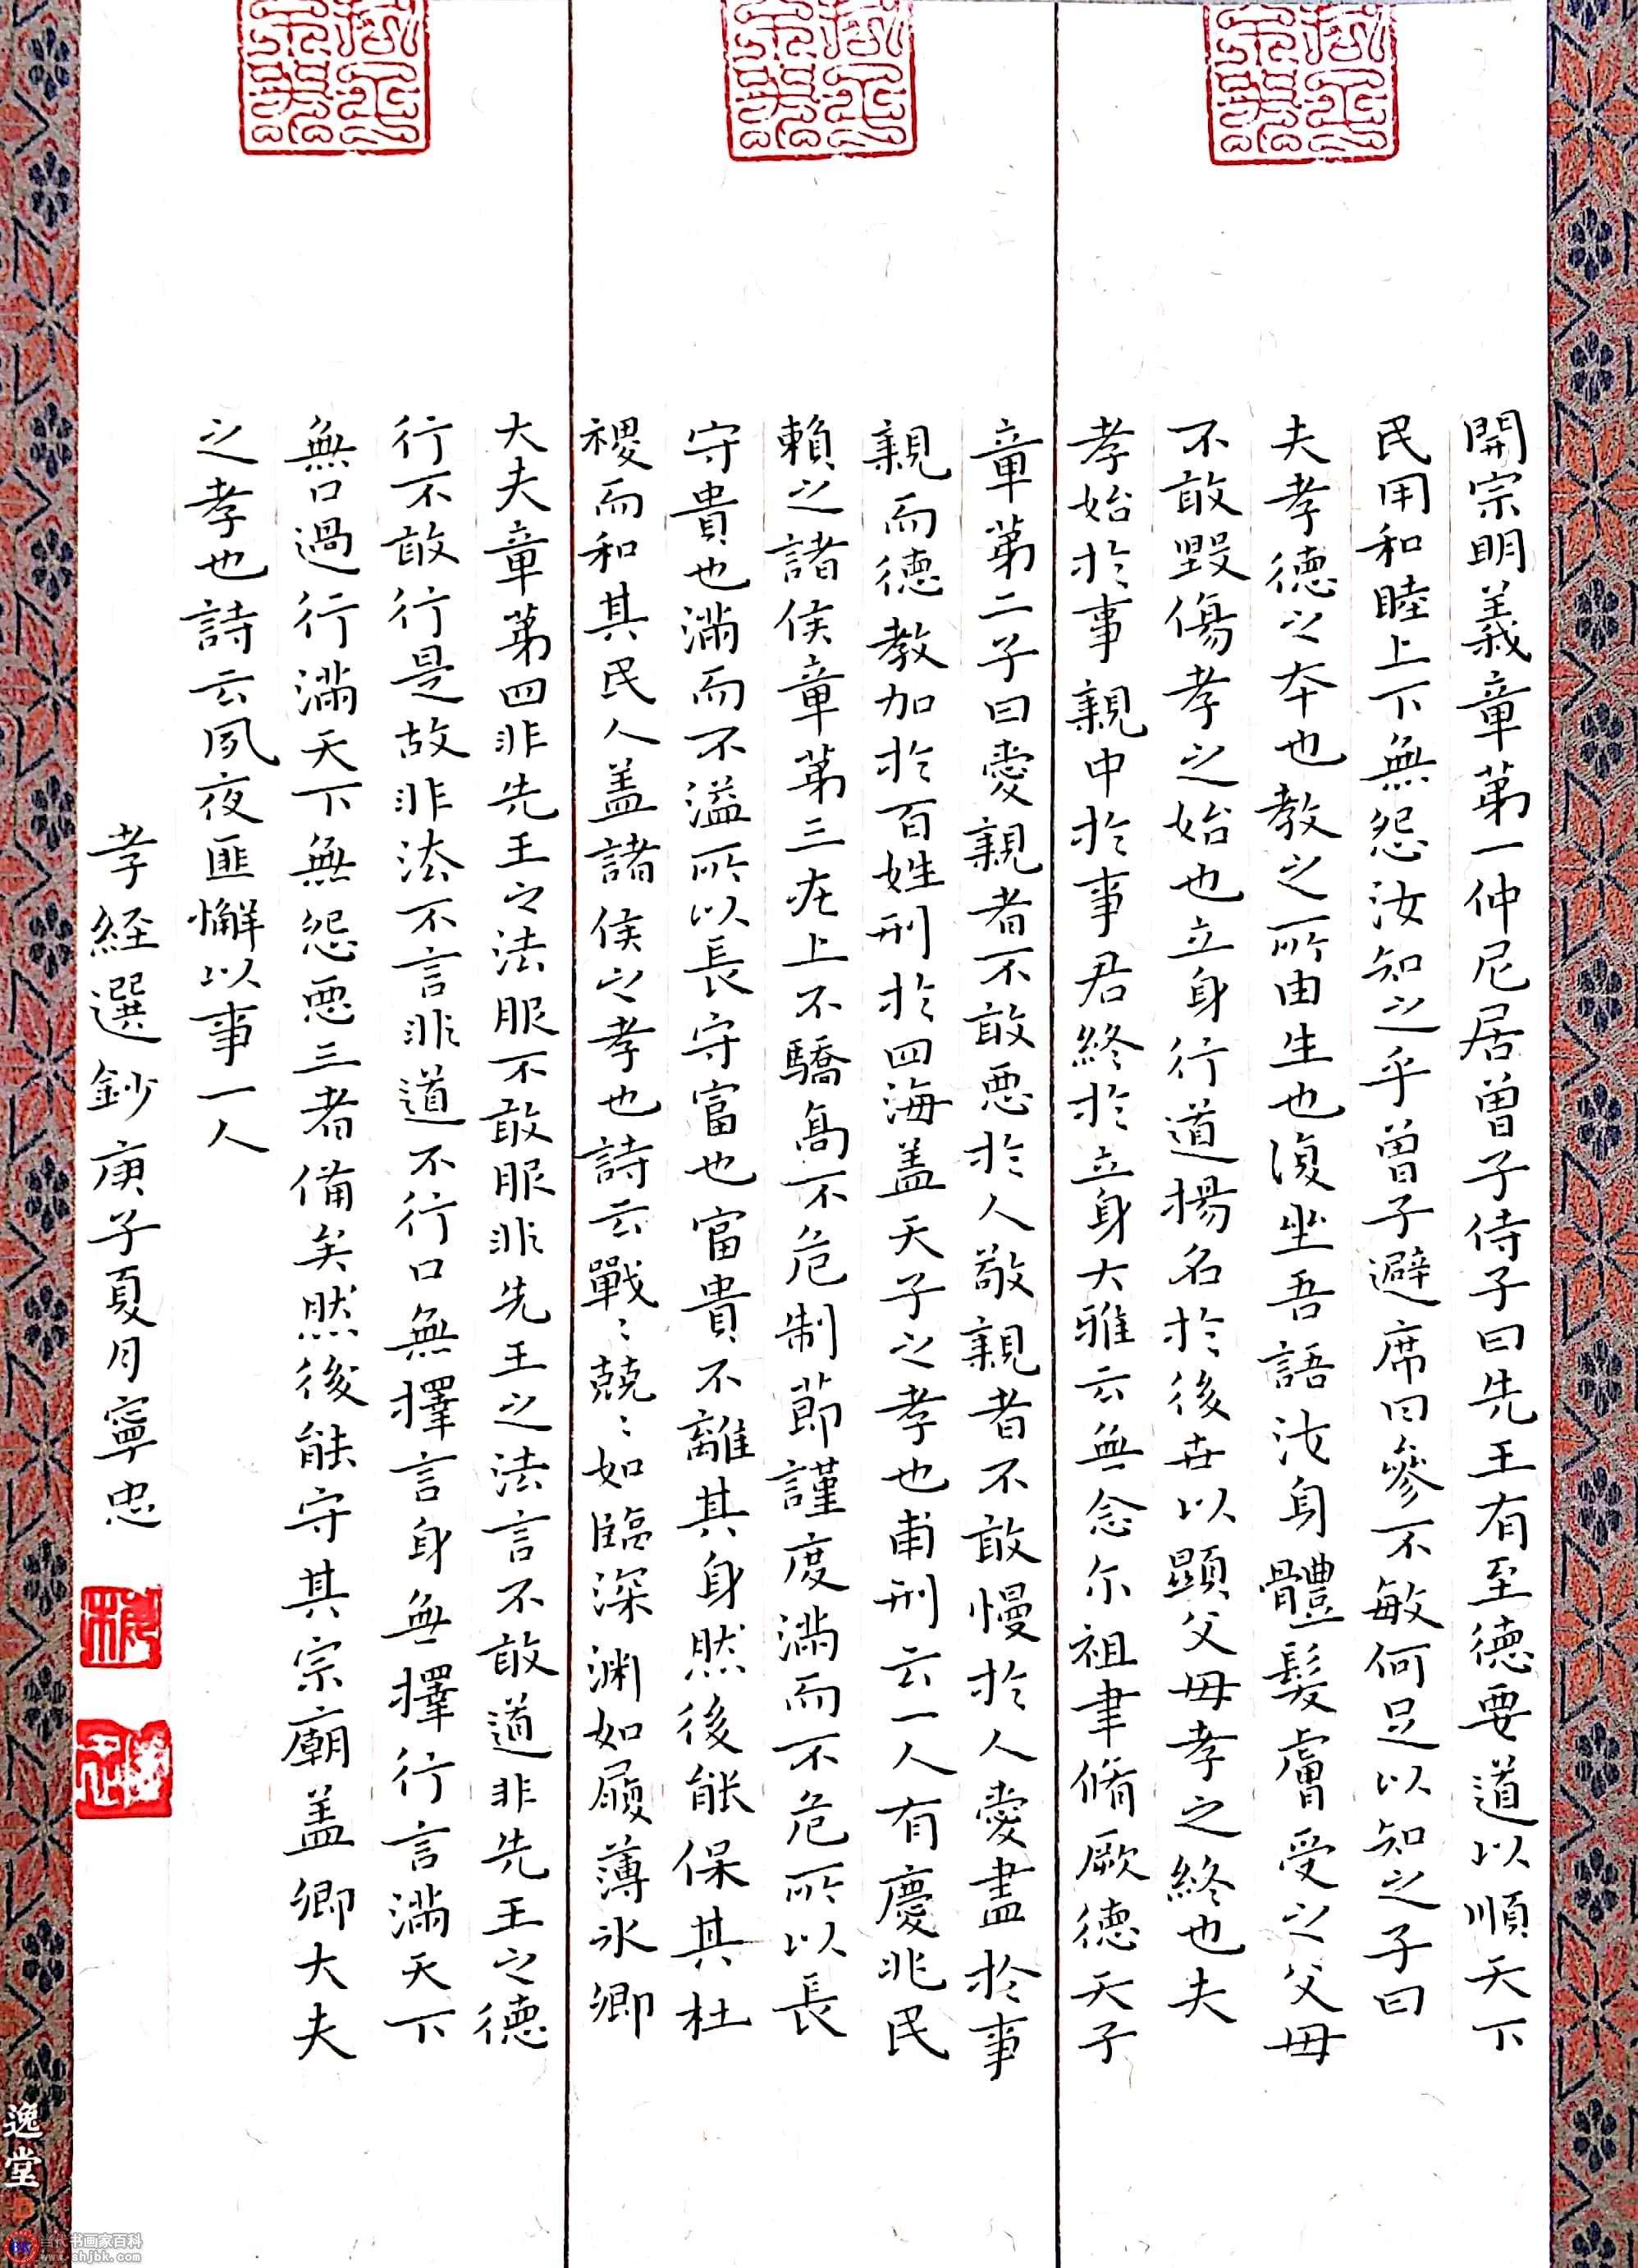 開宗明義章第一仲尼居曾子侍子曰先王有至德要道以順天下
民用和睦上下無怨汝知之乎曾子避席曰參不敏何足以知之子曰
夫孝德之本也教之所由生也復坐吾語汝身體髮膚受之父母
不敢毀傷孝之始也立身行道揚名於後世以顯父母孝之終也夫
孝始於事親中於事君終於立身大雅云無念尔祖聿脩厥德天子
章第二子曰愛親者不敢惡於人敬親者不敢慢於人愛盡於事
親而德教加於百姓刑於四海盖天子之孝也甫刑云一人有慶兆民
賴之諸侯章第三在上不驕高不危制節謹度滿而不危所以長
守貴也滿而不溢所以長守富也富貴不離其身然後能保其社
稷而和其民人盖諸侯之孝也詩云戰〻兢〻如臨深渊如履薄冰卿
大夫章第四非先王之法服不敢服非先王之法言不敢道非先王之德
行不敢行是故非法不言非道不行口無擇言身無擇行言滿天下
無口過行滿天下無怨惡三者備矣然後能守其宗廟盖卿大夫
之孝也詩云夙夜匪懈以事一人
孝經選鈔庚子夏月寧忠
逸堂
当代书画家百科
www.shjbk.com